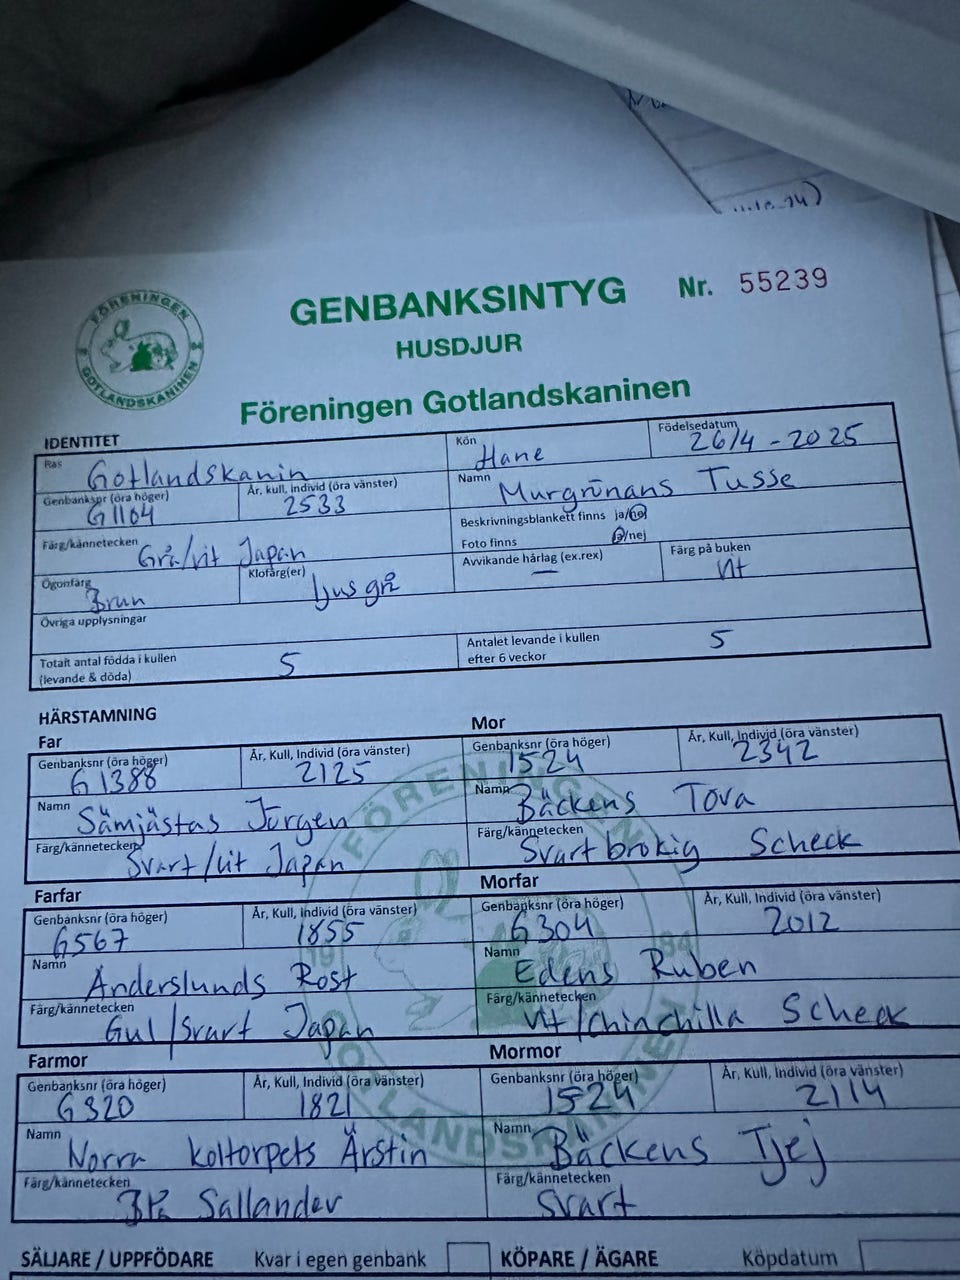 GENBANKSINTYG Nr. 55239
HUSDJUR
FÖRENINGEN GOTLANDSKANINEN
Föreningen Gotlandskaninen
IDENTITET
Ras Gotlandskanin
Kön Hane
Födelsedatum 26/4 - 2025
Genbanksnr (öra höger) G1104
År, kull, individ (öra vänster) 2533
Namn Murgrönans Tusse
Beskrivningsblankett finns ja/nej
Foto finns ja/nej
Färg/kännetecken Grå/vit Japan
Avvikande hårlag (ex.rex) —
Färg på buken Vit
Ögonfärg Brun
Klofärg(er) ljus grå
Övriga upplysningar
Totalt antal födda i kullen 5
(levande & döda)
Antalet levande i kullen 5
efter 6 veckor
HÄRSTAMNING
Far
Genbanksnr (öra höger) G1388
År, Kull, Individ (öra vänster) 2125
Namn Sämjästas Jörgen
Färg/kännetecken Svart/vit Japan
Mor
Genbanksnr (öra höger) 1524
År, Kull, Individ (öra vänster) 2342
Namn Bäckens Tova
Färg/kännetecken Svartbrokig Scheck
Farfar
Genbanksnr (öra höger) G567
År, Kull, Individ (öra vänster) 1855
Namn Anderslunds Rost
Färg/kännetecken Gul/Svart Japan
Morfar
Genbanksnr (öra höger) G304
År, Kull, Individ (öra vänster) 2012
Namn Edens Ruben
Färg/kännetecken Vit/Chinchilla Scheck
Farmor
Genbanksnr (öra höger) G320
År, Kull, Individ (öra vänster) 1821
Namn Norra Koltorpets Ärstin
Färg/kännetecken Sallander
Mormor
Genbanksnr (öra höger) 1524
År, Kull, Individ (öra vänster) 2114
Namn Bäckens Tjej
Färg/kännetecken Svart
FÖRENINGEN GOTLANDSKANINEN
SÄLJARE / UPPFÖDARE Kvar i egen genbank
KÖPARE / ÄGARE Köpdatum